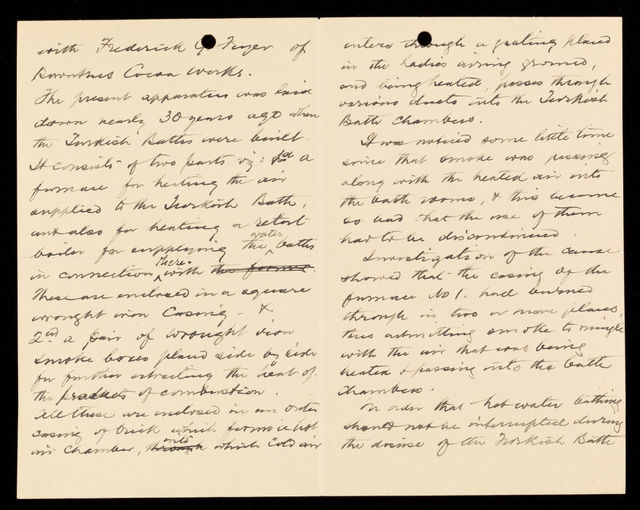 with Frederick G Fryer of
Cocoa Works.
The present apparatus was laid
down nearly 30 years ago when
the Turkish Baths were built.
It consists of two parts viz: 1st a
furnace for heating the air
supplied to the Turkish Bath,
and also for heating a retort
boiler for supplying the water baths
in connection there-with the former
These are enclosed in a square
wrought iron Casing - &
2nd a pair of wrought iron
smoke boxes placed side by side
for further extracting the heat of
the products of combustion.
All these are enclosed in an outer
casing of brick which forms a hot
air chamber, through into which Cold air
enters through a grating placed
in the Ladies airing ground,
and being heated, passes through
various ducts into the Turkish
Bath chambers.
It was noticed some little time
since that smoke was passing
along with the heated air into
the bath rooms, & this became
so bad that the use of them
had to be discontinued.
Investigation of the cause
showed that the casing of the
furnace No 1. had burned
through in two or more places,
thus admitting smoke to mingle
with the air that was being
heated & passing into the bath
chambers.
In order that hot water bathing
should not be interrupted during
the disuse of the Turkish Bath